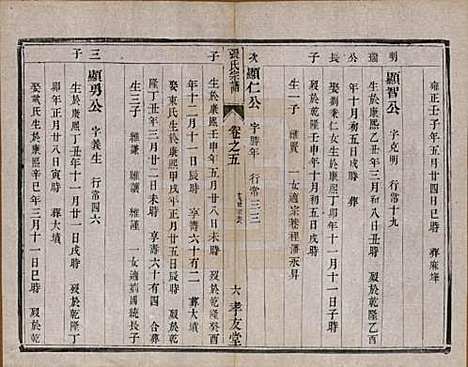 雍正壬子年五月廿四日戌時 葬麻埄
明
瑞
公
長
子
顯智公 字克明 行常十九
生於康熙乙丑年三月初八日丑時 歿於乾隆乙酉
年十月初五日戌時
娶劉秉仁女生於康熙丁卯年十一月十一日子時
歿於乾隆壬申年十月初五日戌時
生一子 維賢 一女適宗巷裡潘永昇
次
子
顯仁公 字勝年 行常三三
生於康熙壬申年五月廿五日 歿於乾隆癸酉
張氏宗譜
卷之五
六 孝友堂
年十二月十一日辰時 享壽六十有二 葬大墳
娶東氏生於康熙甲戌年正月廿五日 歿於乾
隆丁丑年三月廿二日未時 享壽六十有四 合葬
生三子 維謙 維謹 一女適國統長子
三
子
顯勇公 字義生 行常四六
生於康熙丁丑年十一月廿一日戌時 歿於乾隆丁
卯年正月廿八日寅時 葬大墳
娶戴氏生於康熙辛巳年三月十一日巳時 歿於乾